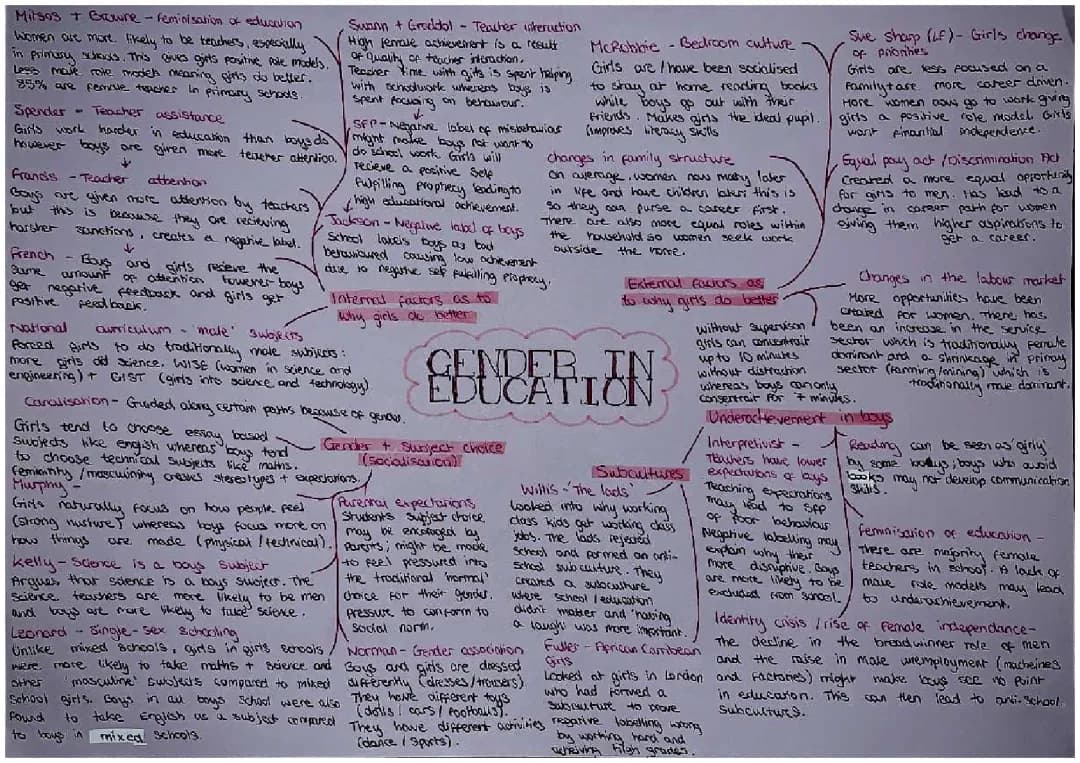 Mitsos + Browne - feminisation of education
Women are more likely to be teachers, especially
in primary schools. This gives girls positive role models.
Less male role models meaning girls do better.
85% are female teacher in primary schools.
Spender - Teacher assistance
Girls work harder in education than boys do
however boys are given more teacher attention.
Francis - Teacher attention
Boys are given more attention by teachers
but this is because they are recieving
harsher sanctions, creates a negative label.
French - Boys and girls recieve the
same amount of attention however boys
get negative feedback and girls get
positive feedback.
National curriculum - 'male' subjects
Forced girls to do traditionally male subjects:
more girls did science. WISE (women in science and
engineering) + GIST (girls into science and technology)
Swann + Graddol - Teacher interaction
High female achievement is a result
of quality of teacher interaction.
Teacher time with girls is spent helping
with schoolwork whereas boys is
spent focusing on behaviour.
SFP - Negative label of misbehaviour
might make boys not want to
do school work. Girls will
recieve a positive self
fulfilling prophecy leading to
high educational achievement.
Jackson - Negative label of boys
School labels boys as bad
behavioured causing low achievement
due to negative self fulfilling prophecy.
Internal factors as to
why girls do better
McRobbie - Bedroom culture
Girls are / have been socialised
to stay at home reading books
while boys go out with their
friends. Makes girls the ideal pupil.
(improves literacy skills
changes in family structure
On average, women now marry later
in life and have children later: this is
so they can purse a career first.
There are also more equal roles within
the household so women seek work
outside the home.
External factors as
to why girls do better
Sue Sharp (LF) - Girls change
of priorities
Girls are less focused on a
family + are more career driven.
More women now go to work giving
girls a positive role model. Girls
want financial independence.
Equal pay act / Discrimination Act
Created a more equal opportunity
for girls to men. Has lead to a
change in career path for women
giving them higher aspirations to
get a career.
Changes in the labour market
More opportunities have been
created for women. There has
been an increase in the service
sector which is traditionally female
dominant and a shrinkage in primary
sector (farming/mining) which is
traditionally male dominant.
without supervison
girls can consentrait
up to 10 minutes
without distraction
whereas boys can only
consentrait for 7 minutes.
GENDER IN
EDUCATION
Canalisation - Guided along certain paths because of gender.
Girls tend to choose essay based
subjects like english whereas boys tend
to choose technical subjects like maths.
femininity / masculinity creates stereotypes + expectations.
Gender + Subject choice
(socialisation)
Murphy -
Girls naturally focus on how people feel
(strong nurture) whereas boys focus more on
how things are made (physical / technical).
Kelly - Science is a boys subject
Argues that science is a boys subject. The
science teachers are more likely to be men
and boys are more likely to take science.
Leonard - Single-Sex Schooling
Unlike mixed schools, girls in girls schools
were more likely to take maths + science and
other 'masculine' subjects compared to mixed
school girls. Boys in all boys school were also
found to take English as a subject compared
to boys in mixed schools.
Parental expectations
Students subject choice
may be encoraged by
parents; might be made
to feel pressured into
the traditional 'normal'
choice for their gender.
pressure to conform to
social norm.
Norman - Gender association
Boys and girls are dressed
differently (dresses/trousers).
They have different toys
(dolls / cars / footballs).
They have different activities
(dance / sports).
Subcultures
Willis - 'The lads'
Looked into why working
class kids got working class
jobs. The lads rejected
school and formed an anti-
school subculture. They
created a subculture
where school / education
didn't matter and 'having
a laugh' was more important.
Fuller - African Carribean
girls
Looked at girls in London
who had formed a
subculture to prove
negative labelling wrong
by working hard and
achieving high grades.
Underachievement in boys
Interpretivist -
Teachers have lower
expectations of boys
Teaching expectations
may lead to SFP
of poor behaviour
Negative labelling may
explain why their
more disruptive. Boys
are more likely to be
excluded from school.
Reading can be seen as 'girly'
by some boys, boys who avoid
books may not develop communication
skills.
Feminisation of education -
There are majority female
teachers in school. A lack of
male role models may lead
to underachievement.
Identity crisis / rise of female independance -
The decline in the breadwinner role of men
and the raise in male unemployment (machines
and factories) might make boys see no point
in education. This can then lead to anti-school
subcultures.